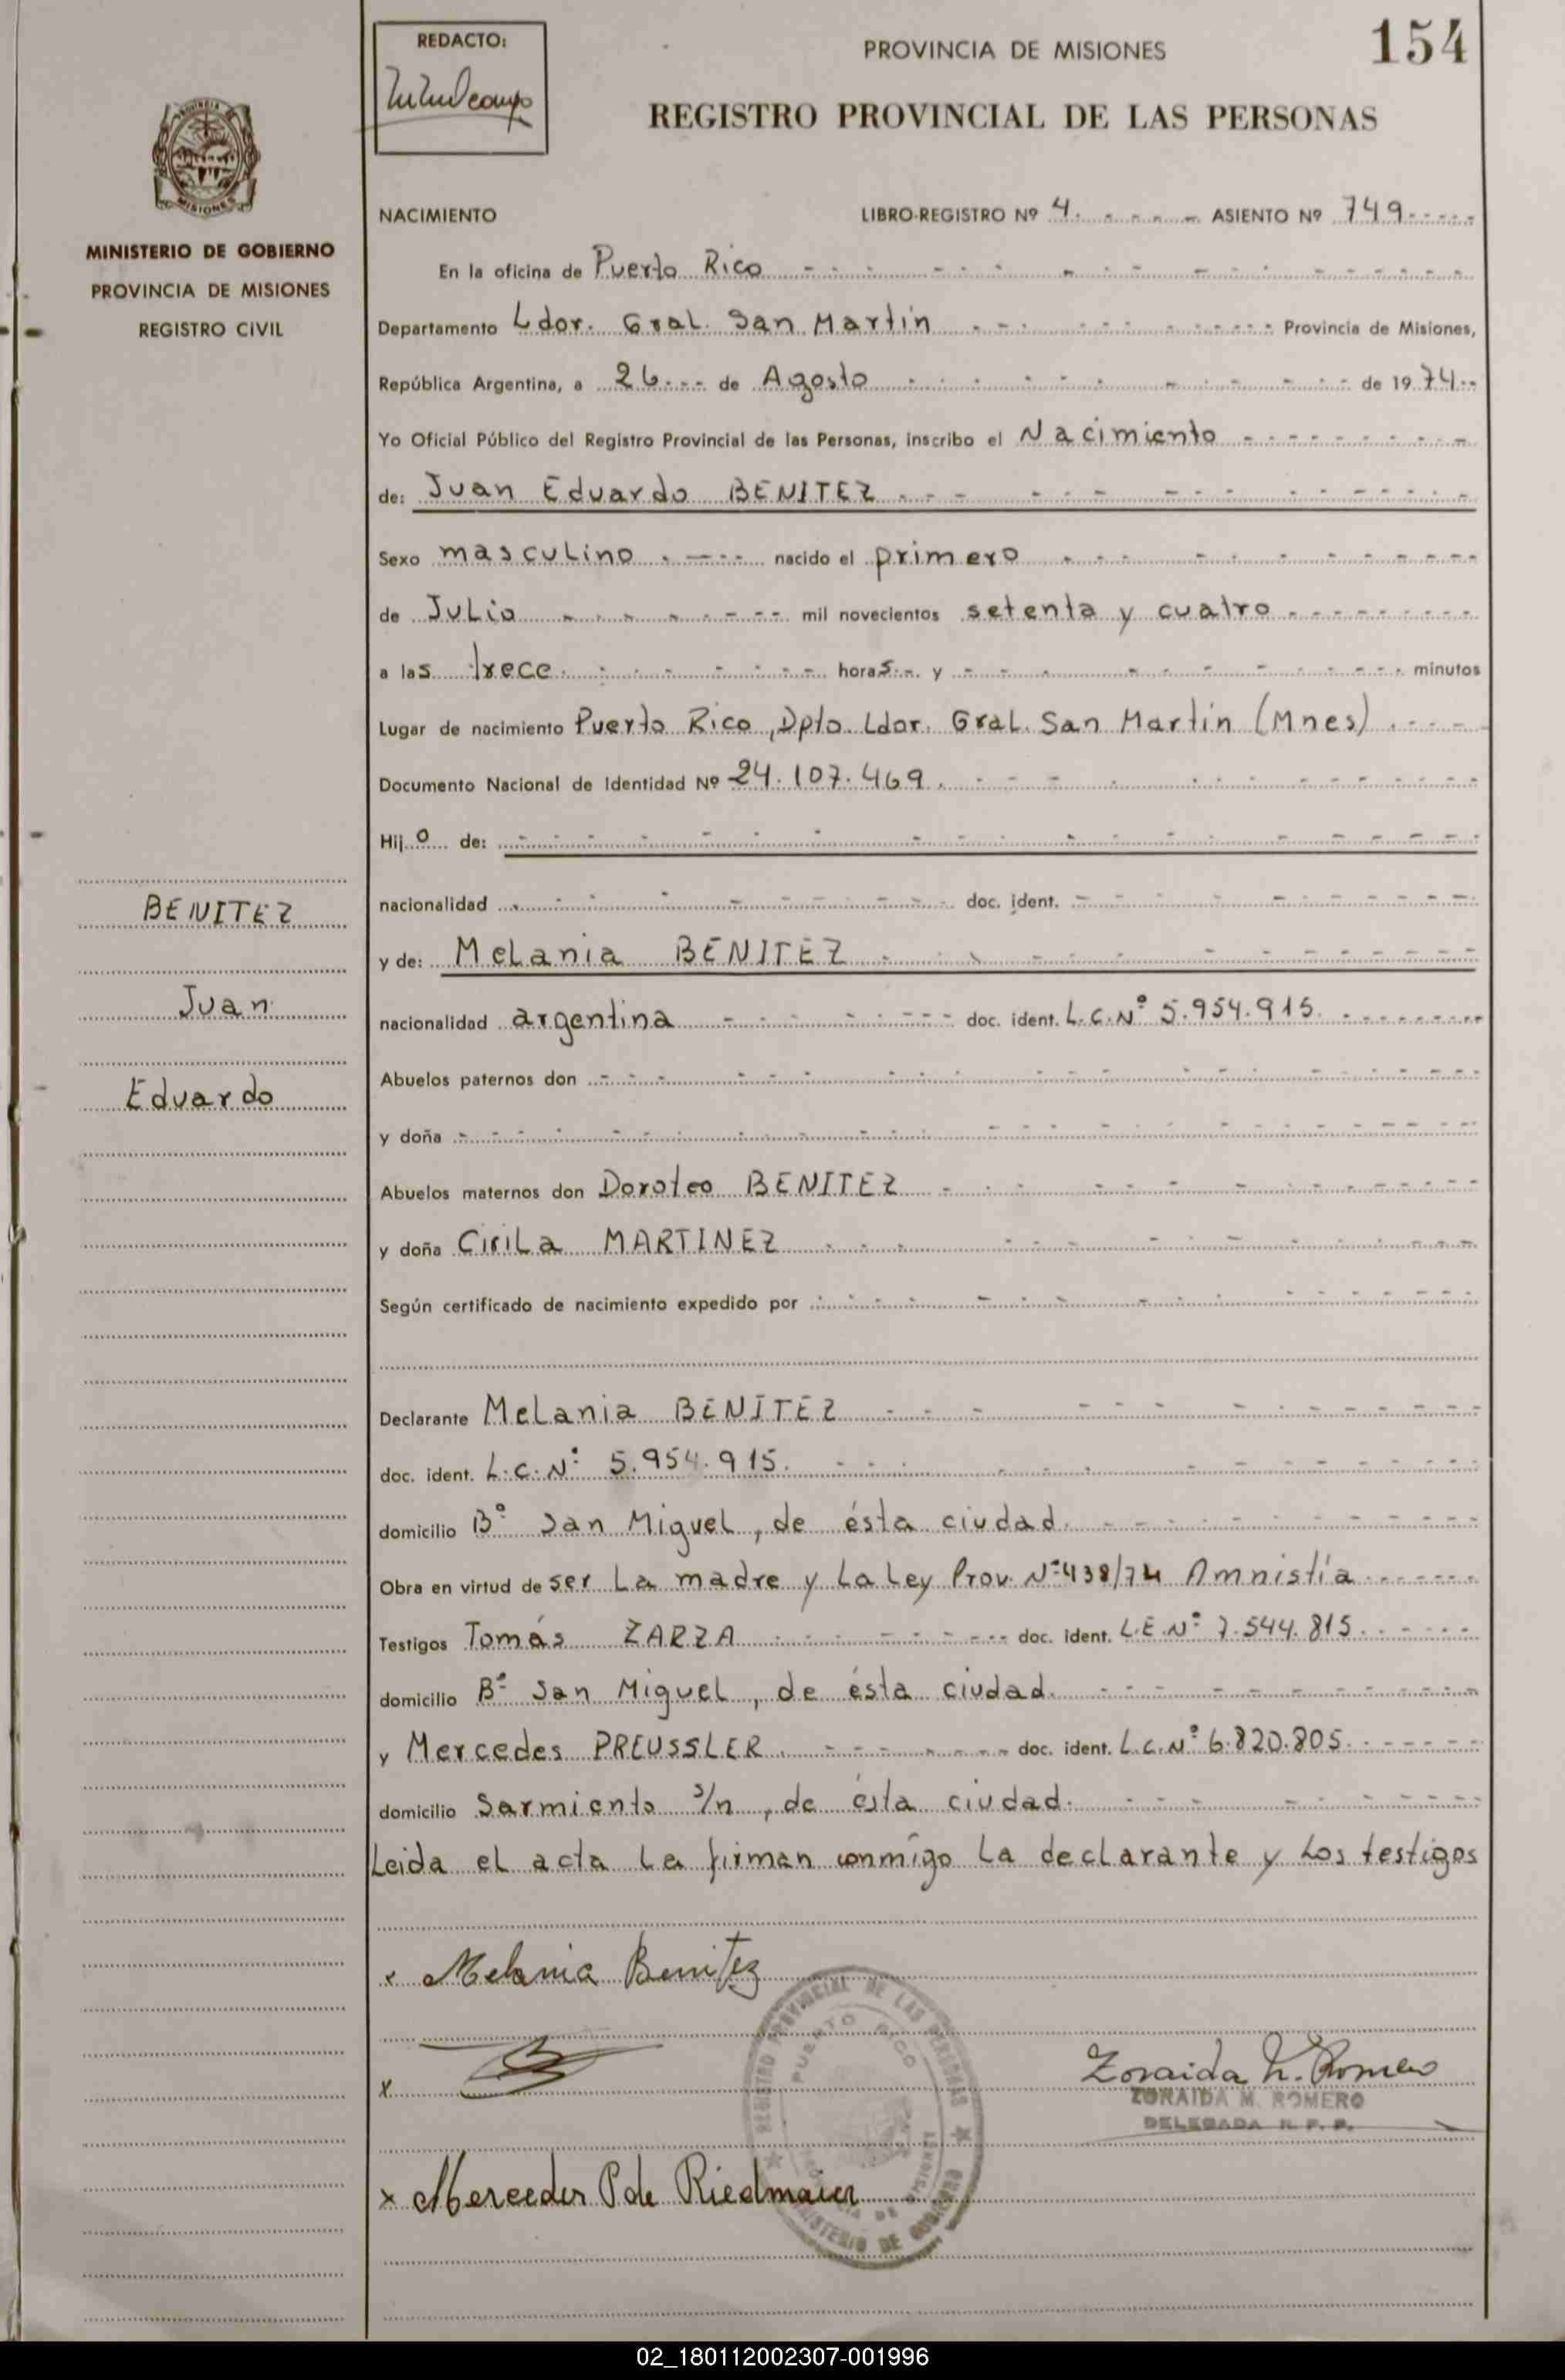 REDACTO:
PROVINCIA DE MISIONES
154
REGISTRO PROVINCIAL DE LAS PERSONAS
MISIONES
MINISTERIO DE GOBIERNO
PROVINCIA DE MISIONES
REGISTRO CIVIL
NACIMIENTO LIBRO-REGISTRO Nº 4. ASIENTO Nº 749
En la oficina de Puerto Rico
Departamento Ldor. Gral. San Martín Provincia de Misiones,
República Argentina, a 26 de Agosto de 1974
Yo Oficial Público del Registro Provincial de las Personas, inscribo el Nacimiento
de: Juan Eduardo BENITEZ
Sexo masculino nacido el primero
de Julio mil novecientos setenta y cuatro
a las trece horas y minutos
Lugar de nacimiento Puerto Rico, Dpto. Ldor. Gral. San Martín (Mnes)
Documento Nacional de Identidad Nº 24.107.469
Hijo de:
nacionalidad doc. ident.
y de: Melania BENITEZ
nacionalidad argentina doc. ident. L.C.Nº 5.954.915
Abuelos paternos don
y doña
Abuelos maternos don Doroteo BENITEZ
y doña Cirila MARTINEZ
Según certificado de nacimiento expedido por
Declarante Melania BENITEZ
doc. ident. L.C.Nº 5.954.915.
domicilio Bº San Miguel, de ésta ciudad.
Obra en virtud de ser la madre y la Ley Prov. Nº 438/74 Amnistía
Testigos Tomás ZARZA doc. ident. L.E.Nº 7.544.815
domicilio Bº San Miguel, de ésta ciudad.
y Mercedes PREUSSLER doc. ident. L.C.Nº 6.820.805
domicilio Sarmiento s/n, de ésta ciudad.
Leida el acta la firman conmigo la declarante y los testigos
BENITEZ
Juan
Eduardo
x Melania Benitez
x
Zoraida M. Romero
ZORAIDA M. ROMERO
DELEGADA R. P. P.
x Mercedes P de Riedmaier
REGISTRO PROVINCIAL DE LAS PERSONAS
PUERTO RICO
MINISTERIO DE GOBIERNO
02_180112002307-001996